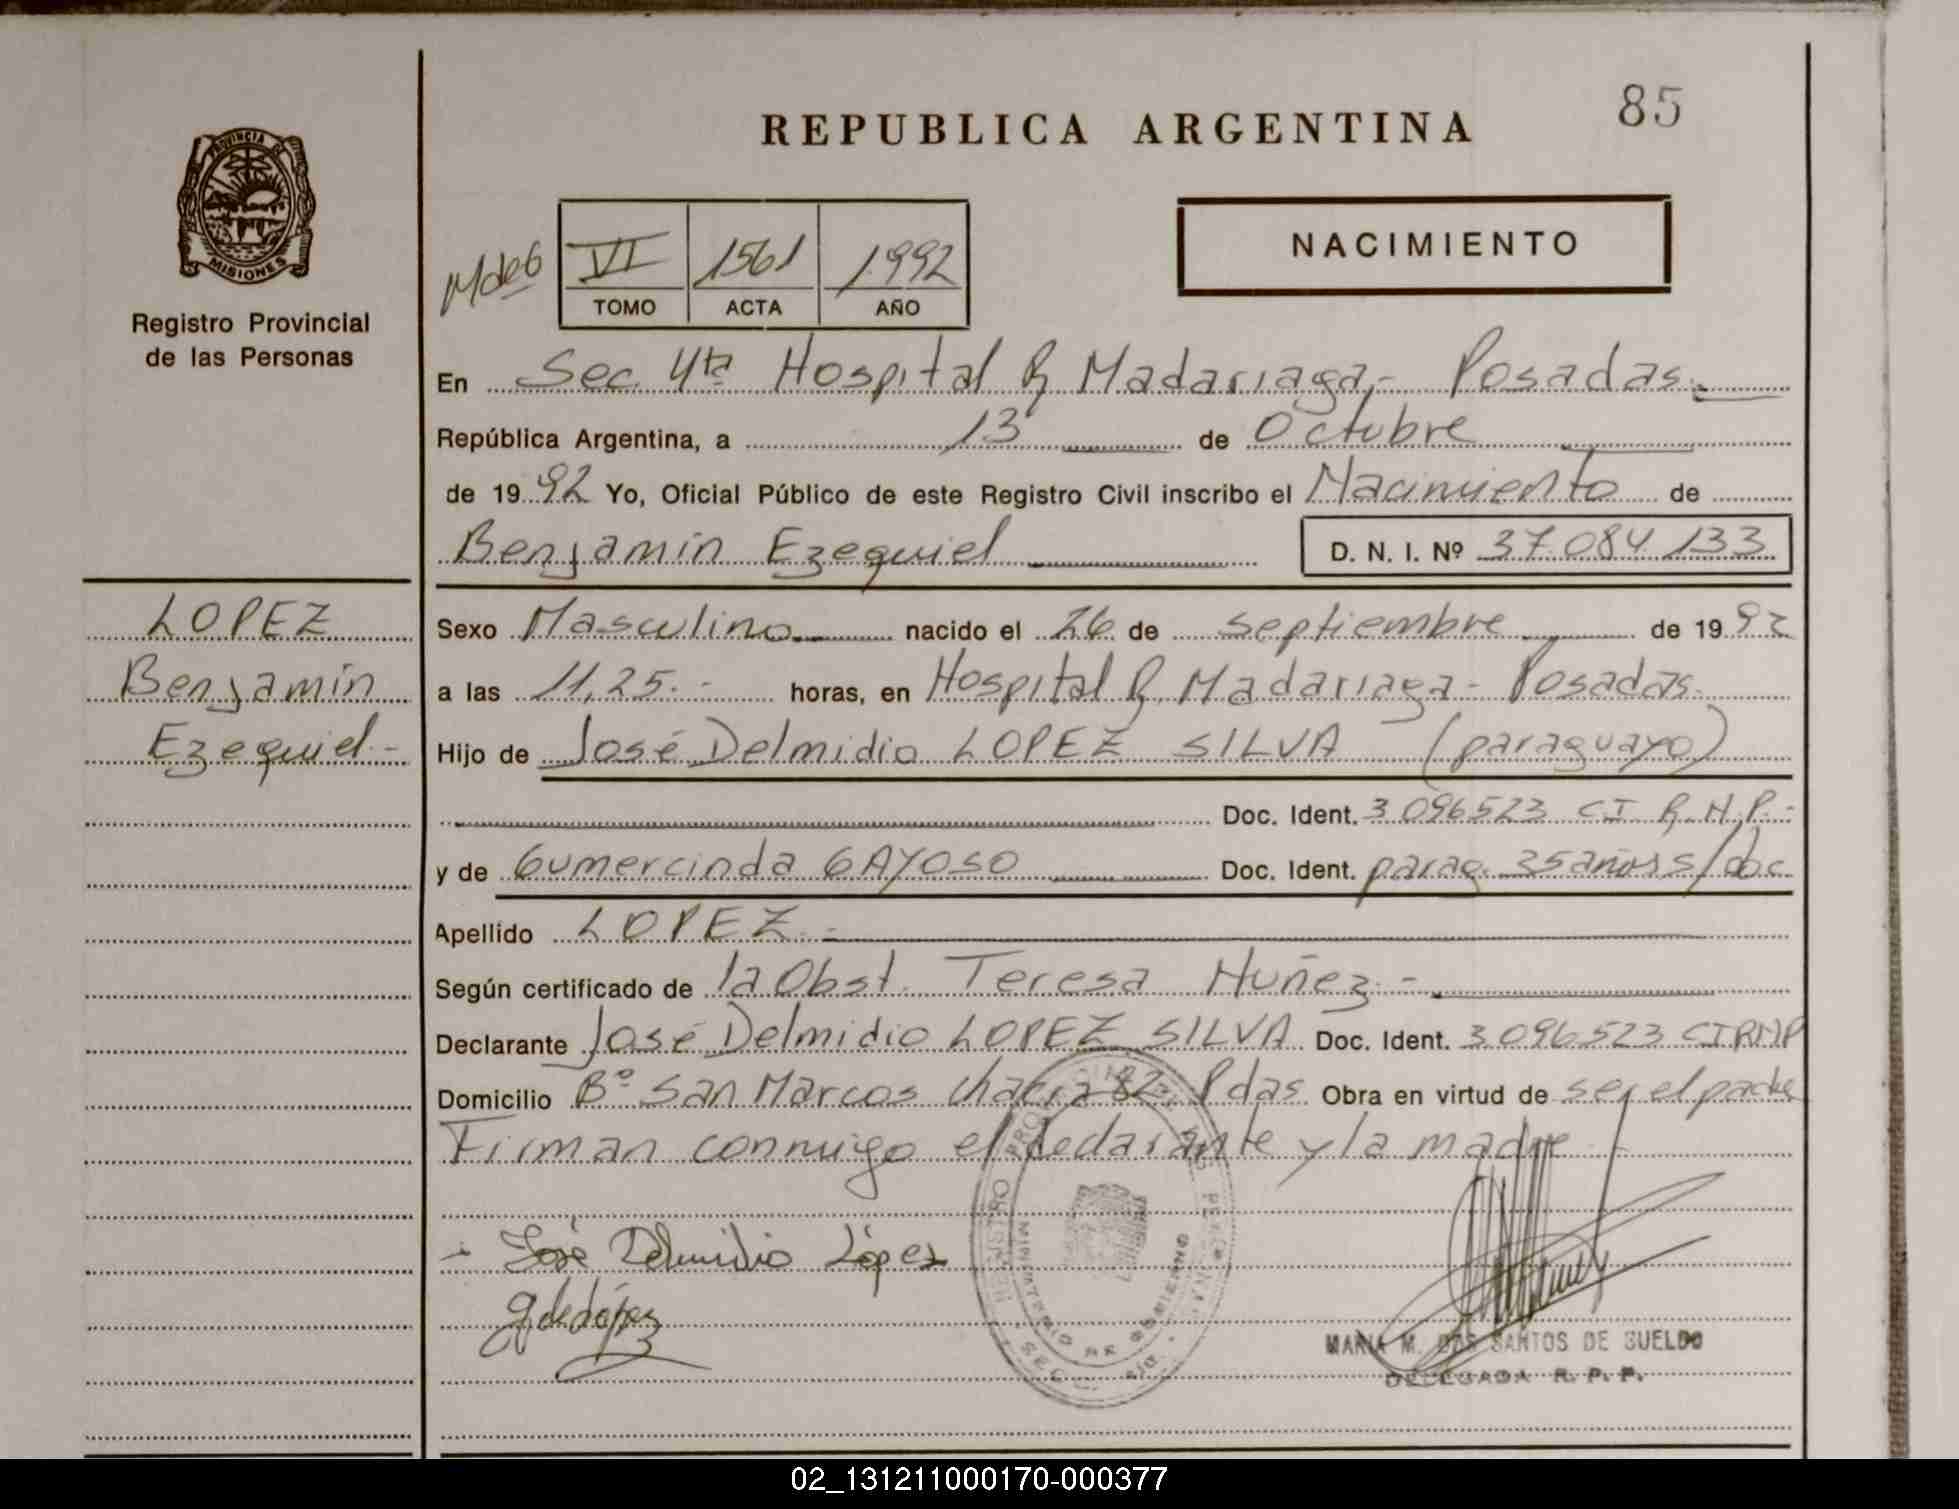 85
REPUBLICA ARGENTINA
PROVINCIA DE
MISIONES
Registro Provincial
de las Personas
Mdeo VI 1561 1992
TOMO ACTA AÑO
NACIMIENTO
En Sec 4ta Hospital R Madariaga,- Posadas.
República Argentina, a 13 de Octubre
de 1992 Yo, Oficial Público de este Registro Civil inscribo el Nacimiento de
Benjamín Ezequiel D. N. I. Nº 37.084.133
LOPEZ
Benjamín
Ezequiel-
Sexo Masculino nacido el 26 de septiembre de 1992
a las 11,25.- horas, en Hospital R. Madariaga- Posadas.
Hijo de José Delmidio LOPEZ SILVA (paraguayo)
Doc. Ident. 3.096523 CI R.N.P.-
y de Gumercinda GAYOSO Doc. Ident. parag. 35 años s/doc
Apellido LOPEZ.-
Según certificado de la Obst. Teresa Nuñez.-
Declarante José Delmidio LOPEZ SILVA Doc. Ident. 3096523 CIRNP
Domicilio Bº San Marcos Chacra 82 Pdas Obra en virtud de ser el padre
Firman conmigo el declarante y la madre
José Delmidio López
MARIA M. DOS SANTOS DE SUELDO
DELEGADA R. P. P.
REGISTRO
MINISTERIO DE GOBIERNO
02_131211000170-000377